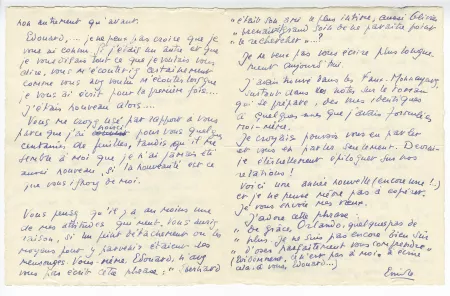 non autrement qu'avant.
Edouard, ... je ne peux pas croire que je
vous ai connu. Si j'étais un autre et que
je vous disais tout ce que je voulais vous
dire, vous m'écouteriez certainement
comme vous avez voulu m'écouter lorsque
je vous ai écrit pour la première fois....
J'étais nouveau alors....
Vous me croyez usé par rapport à vous
parce que j'ai noirci pour vous quelques
centaines de feuilles, tandis qu'il me
semble à moi que je n'ai jamais été
aussi nouveau, si la nouveauté est ce
que vous ignorez de moi.
Vous pensez qu'il y a au moins une
de mes attitudes qui ment. Vous auriez
raison, si un point détachement ou les
moyens pour y parvenir étaient des
mensonges. Vous-même, Edouard, n'avez
vous pas écrit cette phrase : " Bernard
" était son ami le plus intime, aussi Olivier
" prenait grand soin de ne paraître point
" le rechercher "...?
Je ne veux pas vous écrire plus longue-
ment aujourd'hui.
J'avais trouvé dans les Faux-Monnayeurs,
surtout dans des notes sur le roman
qui se prépare, des vues identiques
à quelques-unes que j'avais formulées
moi-même.
Je croyais pouvoir vous en parler
et vous en parler seulement. Devrai-
je éternellement épiloguer sur nos
relations !
Voici une année nouvelle (encore une !..)
et je ne pense même pas à espérer.
Je vous envoie mes vœux.
J'adore cette phrase :
" De grâce, Orlando, quelques pas de
" plus. Je ne suis pas encore bien sûr
" que parfaitement vous comprendre "
(Evidemment, ce n'est pas à moi à écrire
cela à vous, Edouard...)
Emile